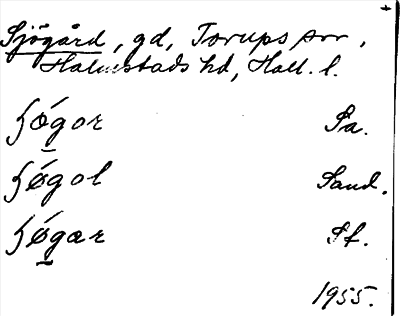 Sjögård, gd, Torups snr,
Halmstads hd, Hall. l.
ʃǿgor Sa.
ʃǿgol Sand.
ʃǿgar Sf.
1955.